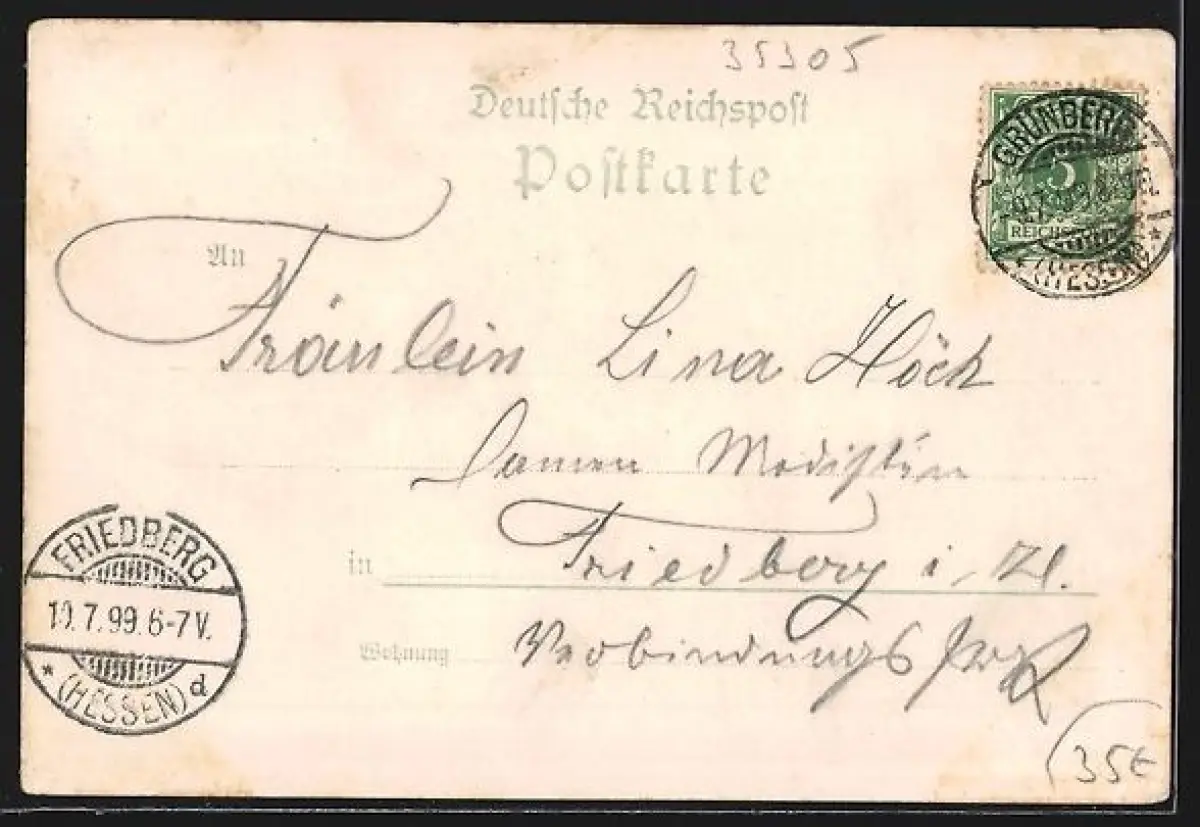 35305
Deutsche Reichspost
Postkarte
GRÜNBERG
5
REICHSPOST
(HESSEN)
An
Fräulein Lina Höck
Damen Modistin
in Friedberg i. H.
Wohnung Verbindungs
FRIEDBERG
10.7.99.6-7V.
* (HESSEN) d
35€